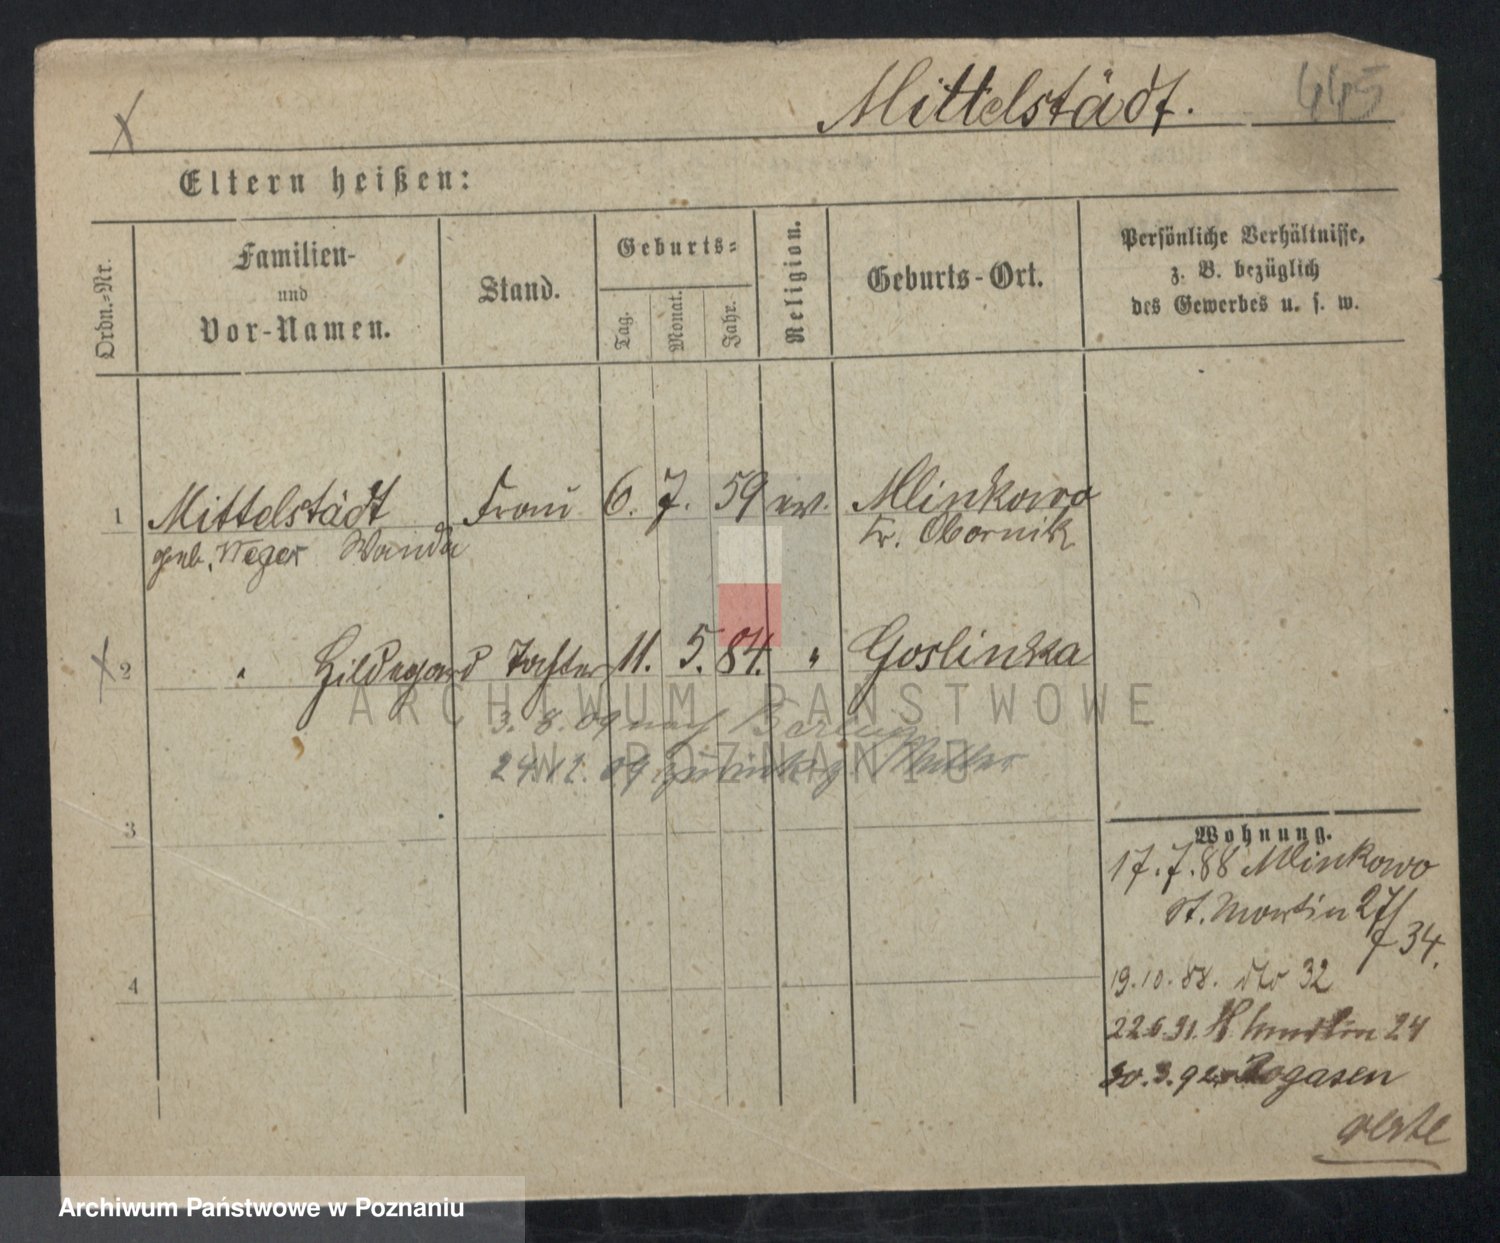 Mittelstädt. 445
Eltern heißen:
Ordn.-Nr.
Familien-
und
Vor-Namen.
Stand.
Geburts-
Tag.
Monat.
Jahr.
Religion.
Geburts-Ort.
Persönliche Verhältnisse,
z. B. bezüglich
des Gewerbes u. s. w.
1 Mittelstädt Frau 6. 7. 59 ev. Mlinkowo
geb. Wanda Kr. Obornik
2 " Hildegard Tochter 11. 5. 84. " Goslinka
3. 8. 09 nach Berlin
24. 12. 09 Müller
3
4
Wohnung.
17.7.88 Mlinkowo
St. Martin 27/
34.
19.10.88. dto 32
22.6.91. 24
30.3.92 Rogasen
ARCHIWUM PAŃSTWOWE
W POZNANIU
Archiwum Państwowe w Poznaniu